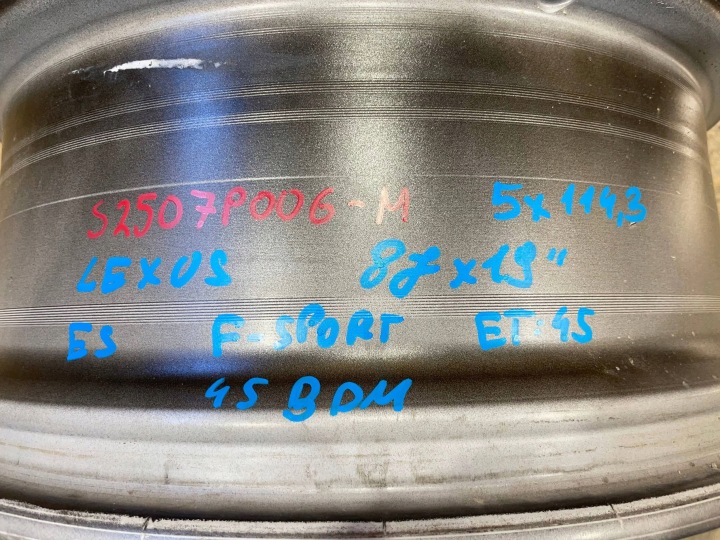 S2507P006-M 5x114,3
LEXUS 8Jx19"
ES F-SPORT ET:45
45 BDM